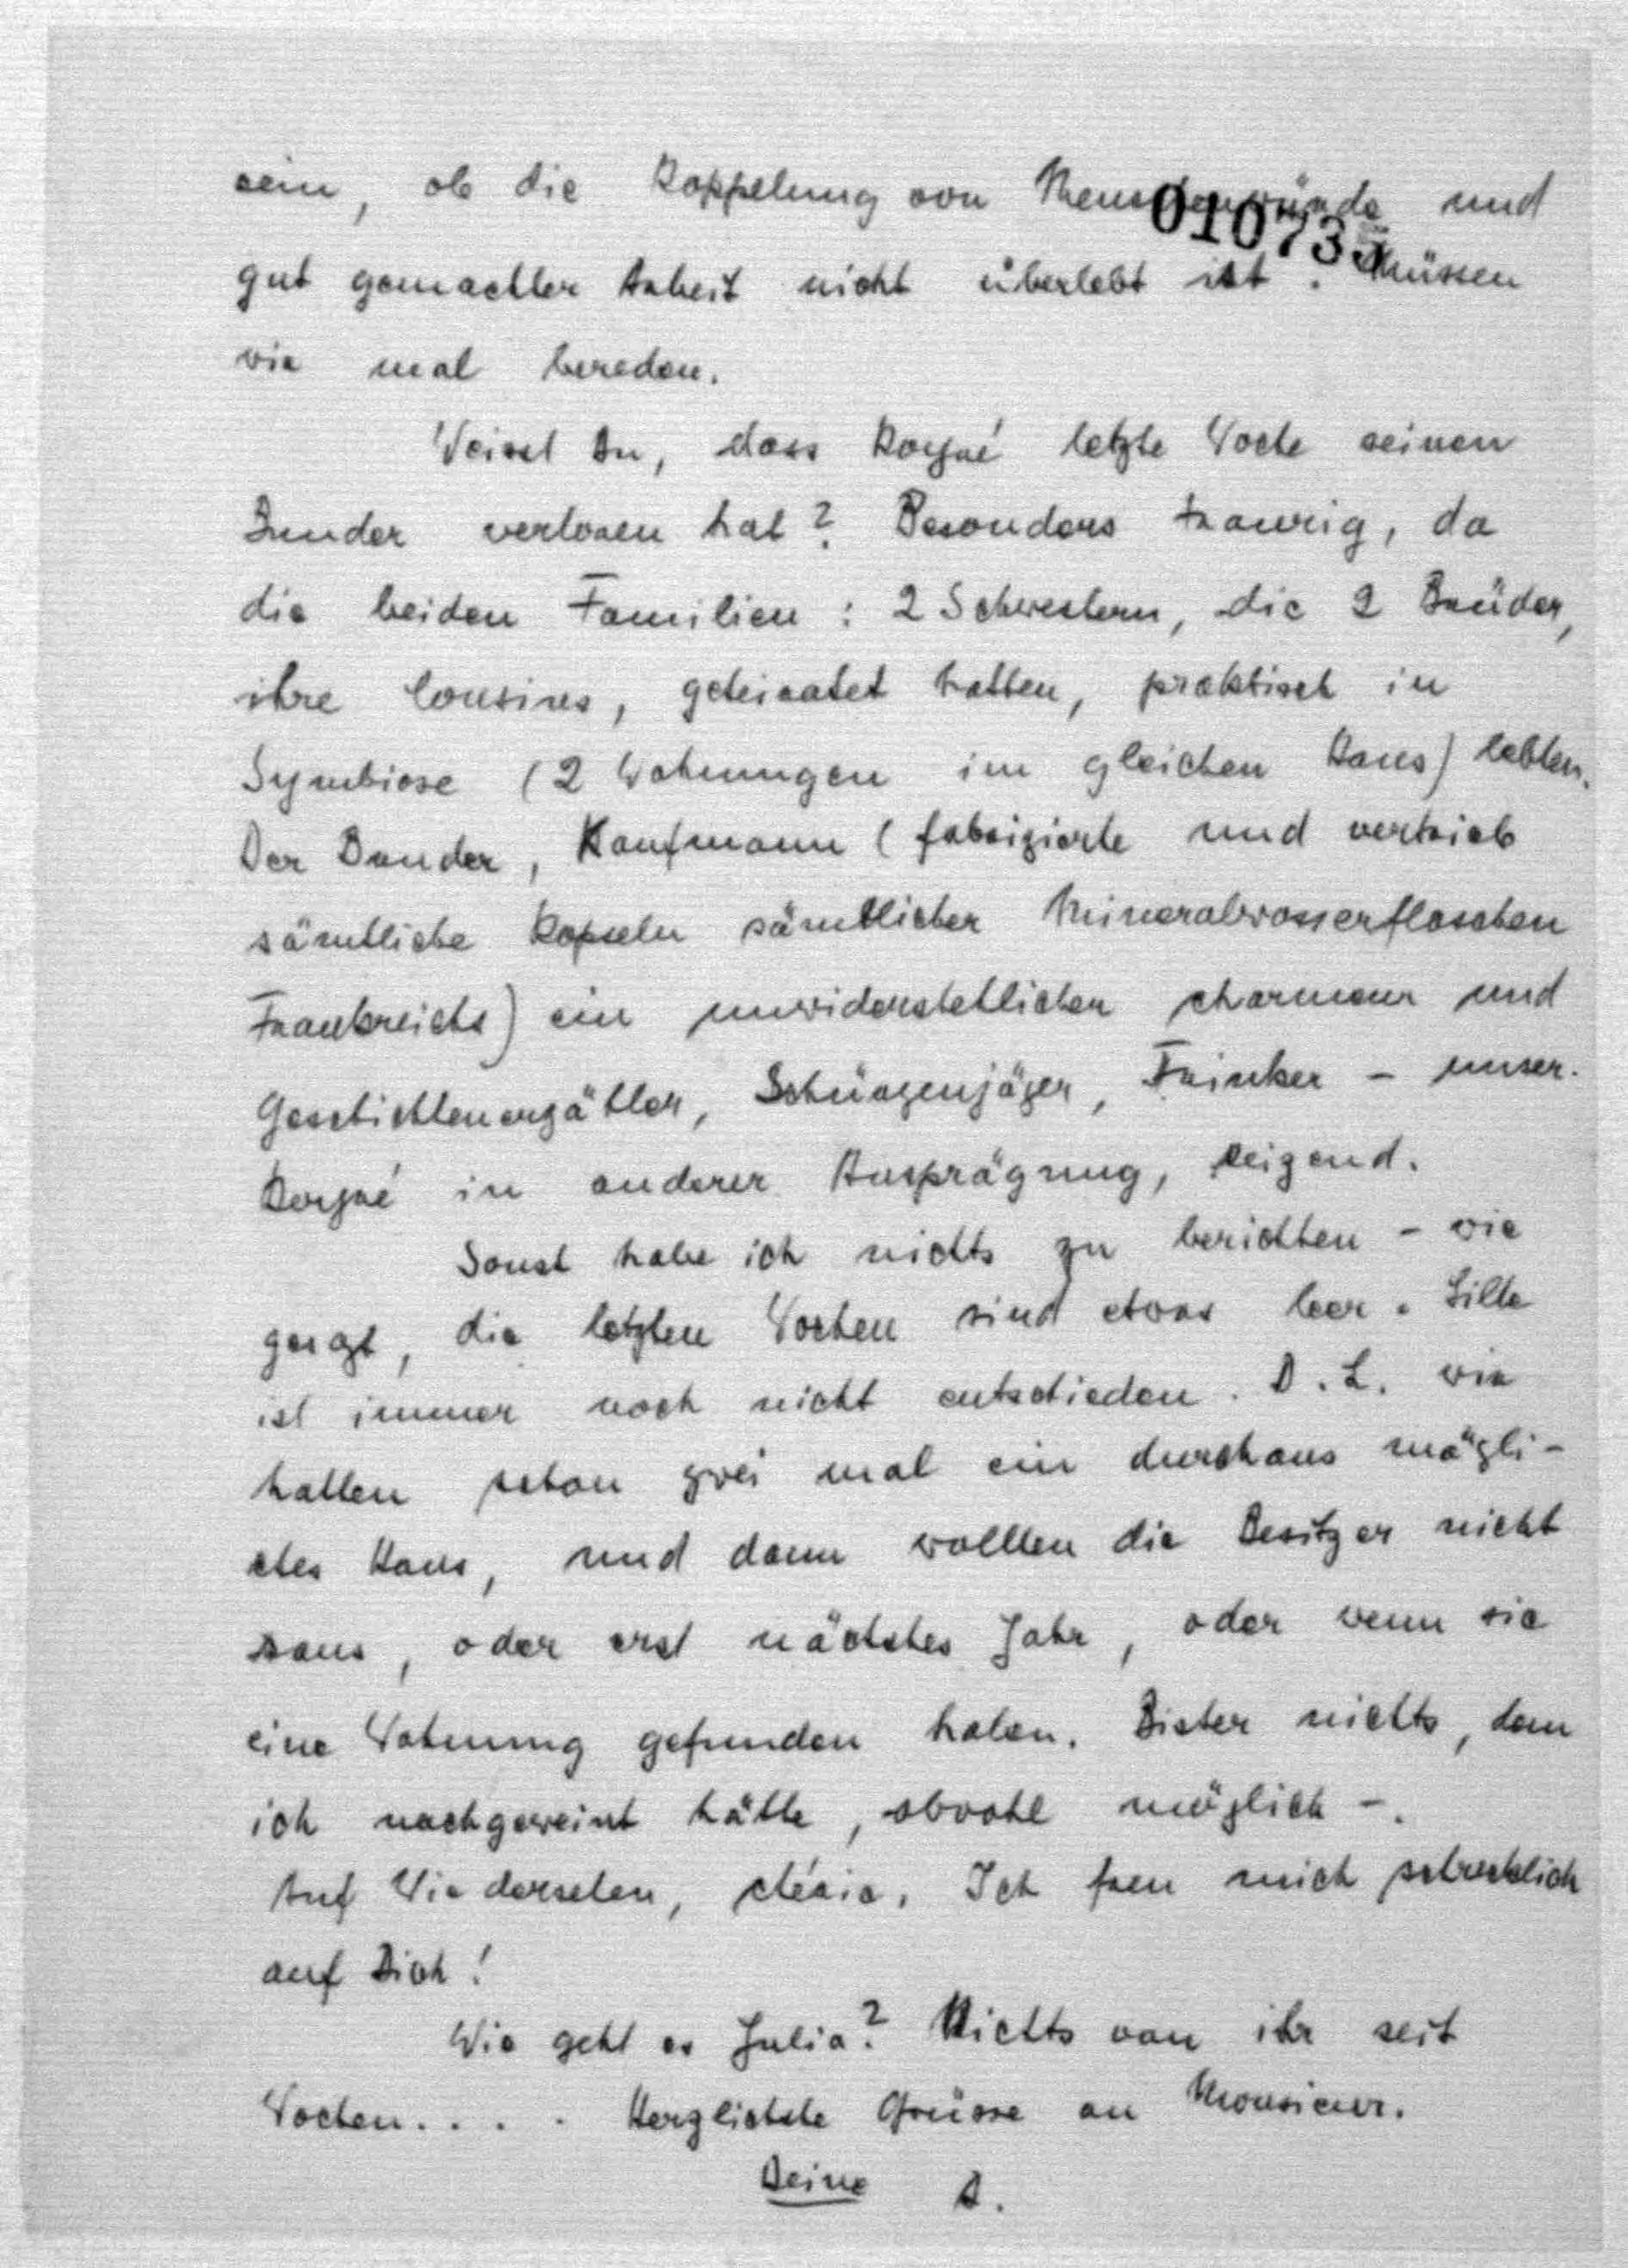 sein, ob die Koppelung von Menschenwürde und
010735
gut gemachter Arbeit nicht überlebt ist. Müssen
wir mal bereden.
Weisst Du, dass Kojvé letzte Woche seinen
Bruder verloren hat? Besonders traurig, da
die beiden Familien: 2 Schwestern, die 2 Brüder,
ihre Cousins, geheiratet hatten, praktisch in
Symbiose (2 Wohnungen im gleichen Haus) lebten.
Der Bruder, Kaufmann (fabrizierte und vertrieb
sämtliche Kapseln sämtlicher Mineralwasserflaschen
Frankreichs) ein unwiderstehlicher charmeur und
Geschichtenerzähler, Schürzenjäger, Trinker - unser
in anderer Ausprägung, reizend.
Sonst habe ich nichts zu berichten - wie
gesagt, die letzten Wochen sind etwas leer. Lille
ist immer noch nicht entschieden. D.h. wir
hatten schon zwei mal ein durchaus mögli-
ches Haus, und dann wollten die Besitzer nicht
raus, oder erst nächstes Jahr, oder wenn sie
eine Wohnung gefunden haben. Bisher nichts, dem
ich nachgeweint hätte, obwohl möglich -.
Auf Wiedersehen, chérie. Ich freu mich schrecklich
auf Dich!
Wie geht es Julia? Nichts von ihr seit
Wochen.... Herzlichste Grüsse an Monsieur.
Deine A.